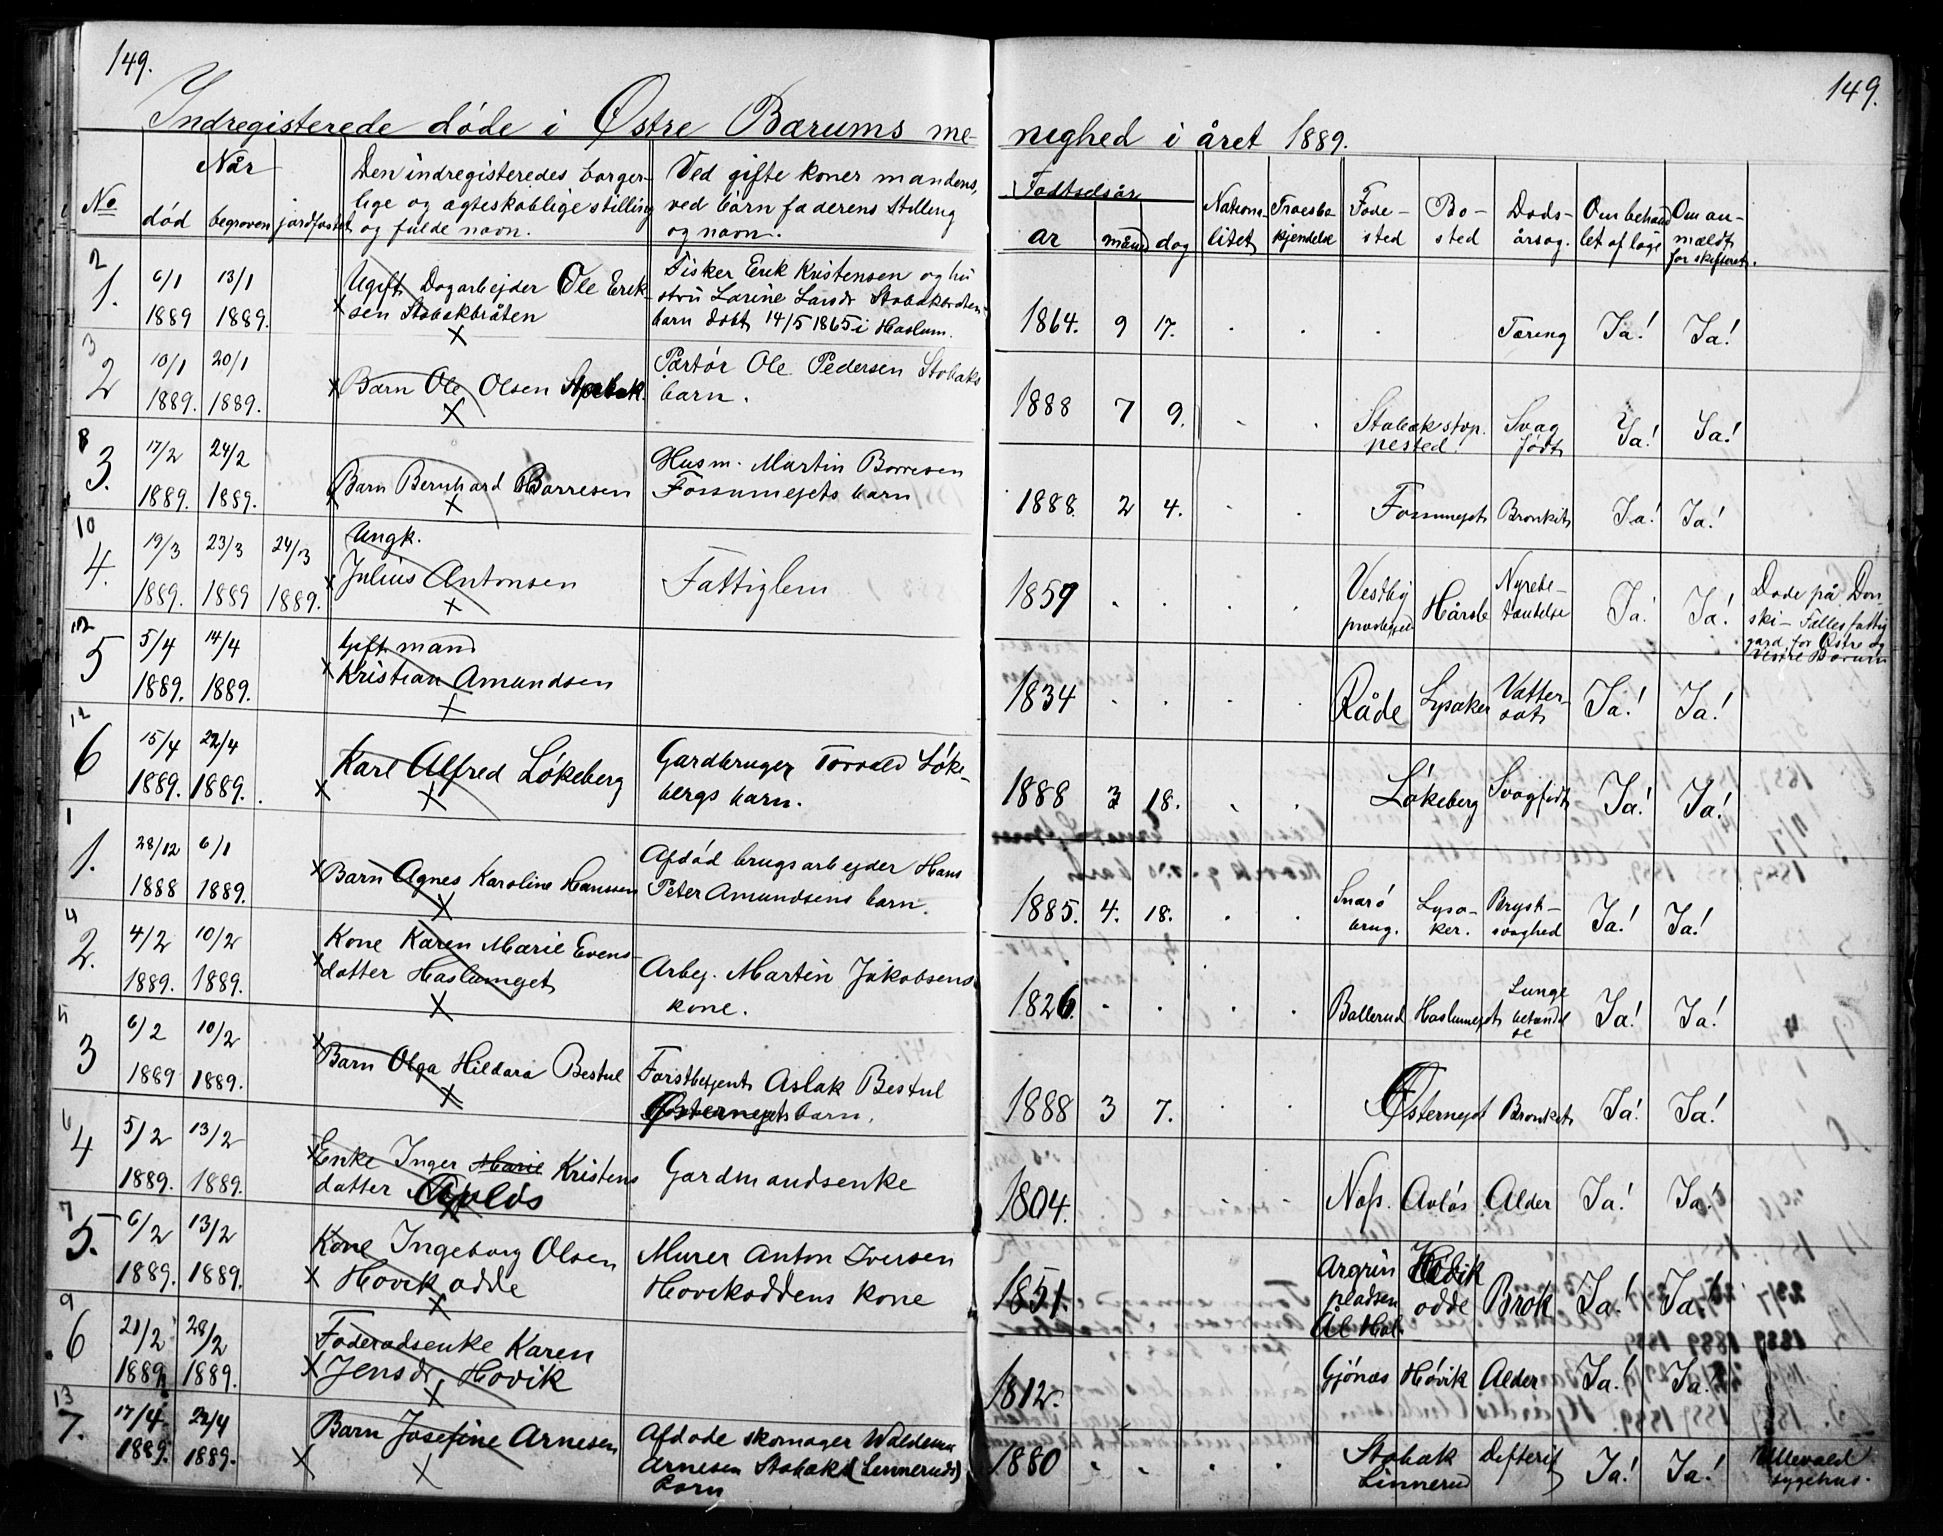 149.
149.
Indregisterede døde i Østre Bærums menighed i året 1889.
No
Når
død
begraven
jordfæstet
Den indregisteredes borgerlige og ægteskablige stilling og fulde navn.
Ved gifte koner mandens, ved børn faderens stilling og navn.
Fødselsår
år
måned
dag
Nationalitet
Troesbekjendelse
Fødested
Bosted
Dødsårsag.
Om behandlet af læge
Om anmældt for skifteret.
2
1. 6/1 1889 13/1 1889. Ugift Dagarbejder Ole Eriksen Stabækbråten
Fisker Erik Kristensen og hustru Larine Larsdr Stabækbråtens barn døbt 14/5 1865 i Haslum.
1864. 9 17. Tæring Ja! Ja!
3
2 10/1 1889. 20/1 1889. Barn Ole Olsen Stabæk
Portør Ole Pedersen Stabæks barn.
1888 7 9. Stabæk stoppested. Svagfødt Ja! Ja!
8
3. 17/2 1889. 24/2 1889. Barn Bernhard Børresen
Husm. Martin Børresen Fossumejets barn
1888. 2 4. Fossumejet Bronkit Ja! Ja!
10
4. 19/3 1889. 23/3 1889 24/3 1889. Ungk. Julius Antonsen
Fattiglem
1859 Vestby præstegjeld Hårsle Nyrebetændelse Ja! Ja! Døde på Dønski Fællesfattiggård for Østre og Vestre Bærum
12
5 5/4 1889. 14/4 1889. Gift mand Kristian Amundsen
1834 Råde Lysaker Vattersot Ja! Ja!
12
6 15/4 1889. 22/4 1889. Karl Alfred Løkeberg
Gårdbruger Torvald Løkebergs barn.
1888 3 18. Løkeberg Svagfødt Ja! Ja!
1
1. 28/12 1888 6/1 1889. Barn Agnes Karoline Hanssen
Afdød brugsarbejder Hans Peter Amundsens barn.
1885. 4. 18. Snarø brug. Lysaker. Brystsvaghed Ja! Ja!
4
2. 4/2 1889. 10/2 1889. Kone Karen Marie Evensdatter Haslumejet
Arbej. Martin Jakobsens kone.
1826. Ballerud Haslumejet Lungebetændelse Ja! Ja!
5
3 6/2 1889 10/2 1889. Barn Olga Hildara Bestul
Forstbetjent Aslak Bestul Østernejets barn.
1888 3 7. Østernejet Bronkit Ja! Ja!
6
4 5/2 1889. 13/2 1889. Enke Inger Marie Kristensdatter Avløs
Gårdmandsenke
1804. Næs. Avløs Alder Ja! Ja!
7
5. 6/2 1889. 13/2 1889. Kone Ingeborg Olsen Høvikodde
Murer Anton Iversen Høvikoddens kone
1851. pladsen Ål Hal. Høvikodde Brok Ja! Ja!
9
6 21/2 1889 28/2 1889. Føderådsenke Karen Jensdr. Høvik
1812. Gjønæs Høvik Alder Ja! Ja!
13
7. 17/4 1889. 22/4 1889. Barn Josefine Arnesen
Afdøde skomager Waldemar Arnesen Stabæk (Linneruds) barn
1880 Stabæk Linnerud Defterit Ja! Ja! Ullevold sygehus.